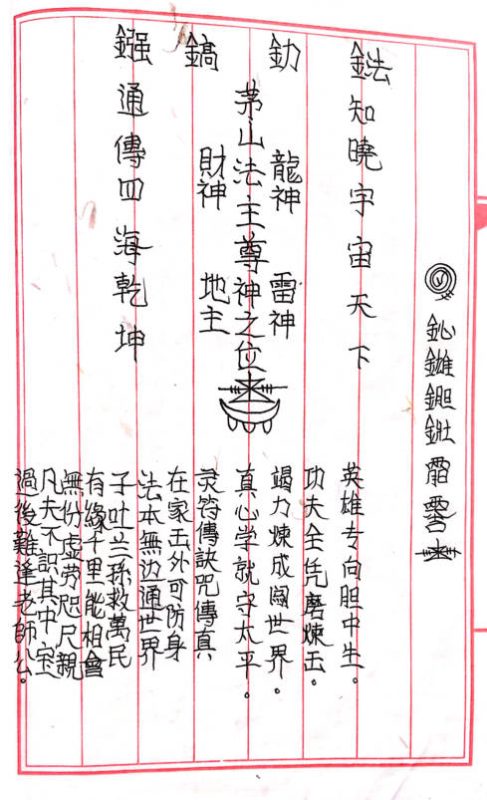 鍅知曉宇宙天下
釛
龍神 雷神
茅山法主尊神之位
鎬
財神 地主
鏹通傳四海乾坤
英雄专向胆中生。
功夫全凭磨煉玉。
竭力煉成闯世界。
真心学就守太平。
灵符傳訣咒傳真
在家玉外可防身
法本無边通世界
子吐兰孫救萬民
有緣千里能相會
無份虚劳咫尺親
凡夫不識其中宝
過後難逢老師公。